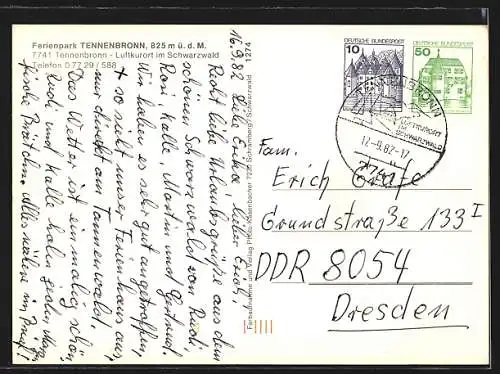 Ferienpark TENNENBRONN, 825 m ü. d. M.
7741 Tennenbronn - Luftkurort im Schwarzwald
Telefon 0 77 29 / 588
16.9.82 Liebe Erika, lieber Erich,
Recht liebe Urlaubsgrüße aus dem
schönen Schwarzwald von Rudi,
Rosi, Kalle, Martin und Gertrud.
Wir haben es sehr gut angetroffen,
+ so sieht unser Ferienhaus aus,
nur direkt am Tannenwald.
Das Wetter ist einmalig schön,
Rudi und Kalle holen jeden Morgen
frische Brötchen. Alles wäre in
Farbaufnahme und Verlag Photo
Schramberg/Schwarzwald 1274
DEUTSCHE BUNDESPOST
10
DEUTSCHE BUNDESPOST
50
TENNENBRONN
LUFTKURORT
IM
SCHWARZWALD
17.-9.82-17
7741
Fam.
Erich Gräfe
Grundstraße 133 I
DDR 8054
Dresden